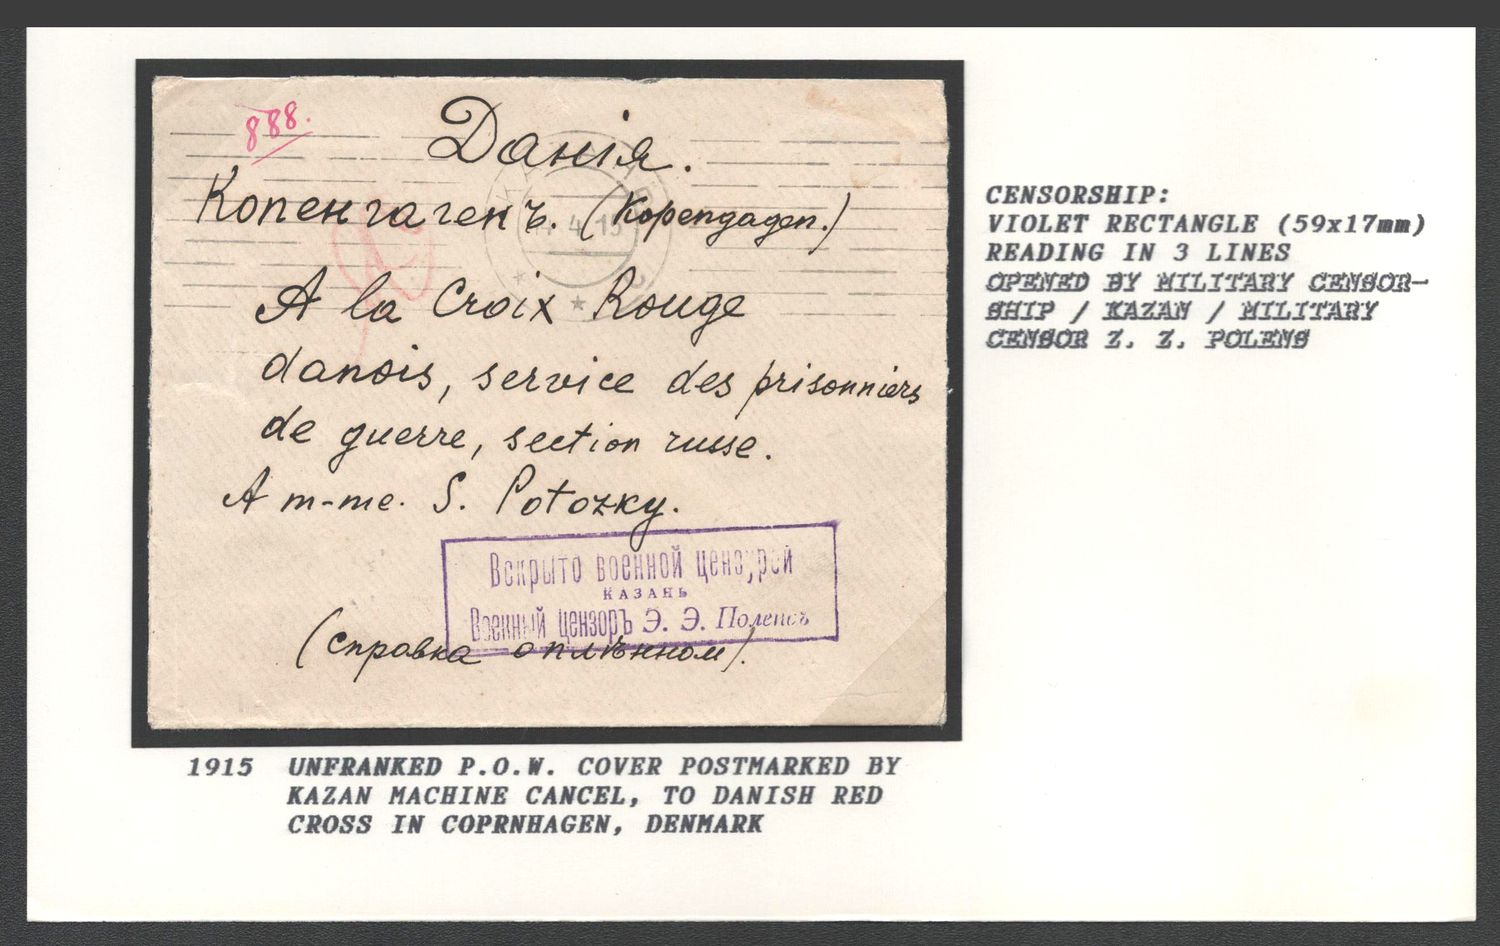 888.
Данія.
Копенгагенъ. (Kopengagen.)
4 15
A la Croix Rouge
danois, service des prisonniers
de guerre, section russe.
A m-me. S. Potozky.
Вскрыто военной цензурой
КАЗАНЬ
Военный цензоръ Э. Э. Поленсъ
(справка о плѣнном).
CENSORSHIP:
VIOLET RECTANGLE (59x17mm)
READING IN 3 LINES
OPENED BY MILITARY CENSOR-
SHIP / KAZAN / MILITARY
CENSOR Z. Z. POLENS
1915 UNFRANKED P.O.W. COVER POSTMARKED BY
KAZAN MACHINE CANCEL, TO DANISH RED
CROSS IN COPRNHAGEN, DENMARK